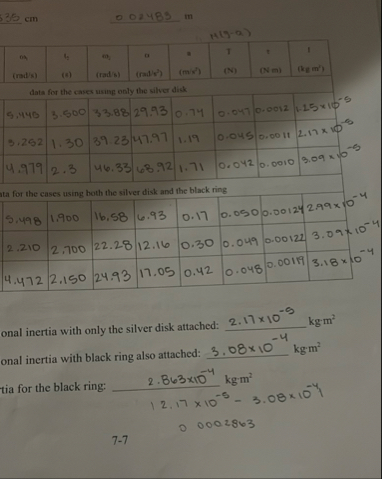 535 cm 0.02485 m
m(g-a)
ω₁ t₁ ω₂ α a T τ I
(rad/s) (s) (rad/s) (rad/s²) (m/s²) (N) (N·m) (kg·m²)
data for the cases using only the silver disk
5.445 3.500 33.88 29.93 0.74 0.047 0.0012 1.25×10⁻⁵
5.252 1.30 39.23 47.97 1.19 0.045 0.0011 2.17×10⁻⁵
4.979 2.3 46.33 68.92 1.71 0.042 0.0010 3.09×10⁻⁵
ata for the cases using both the silver disk and the black ring
5.498 1.900 16.58 6.93 0.17 0.050 0.00124 2.99×10⁻⁴
2.210 2.700 22.28 12.16 0.30 0.049 0.00122 3.09×10⁻⁴
4.472 2.150 24.93 17.05 0.42 0.048 0.00119 3.18×10⁻⁴
onal inertia with only the silver disk attached: 2.17×10⁻⁵ kg·m²
onal inertia with black ring also attached: 3.08×10⁻⁴ kg·m²
rtia for the black ring: 2.863×10⁻⁴ kg·m²
12.17×10⁻⁵ - 3.08×10⁻⁴1
0 0002863
7-7